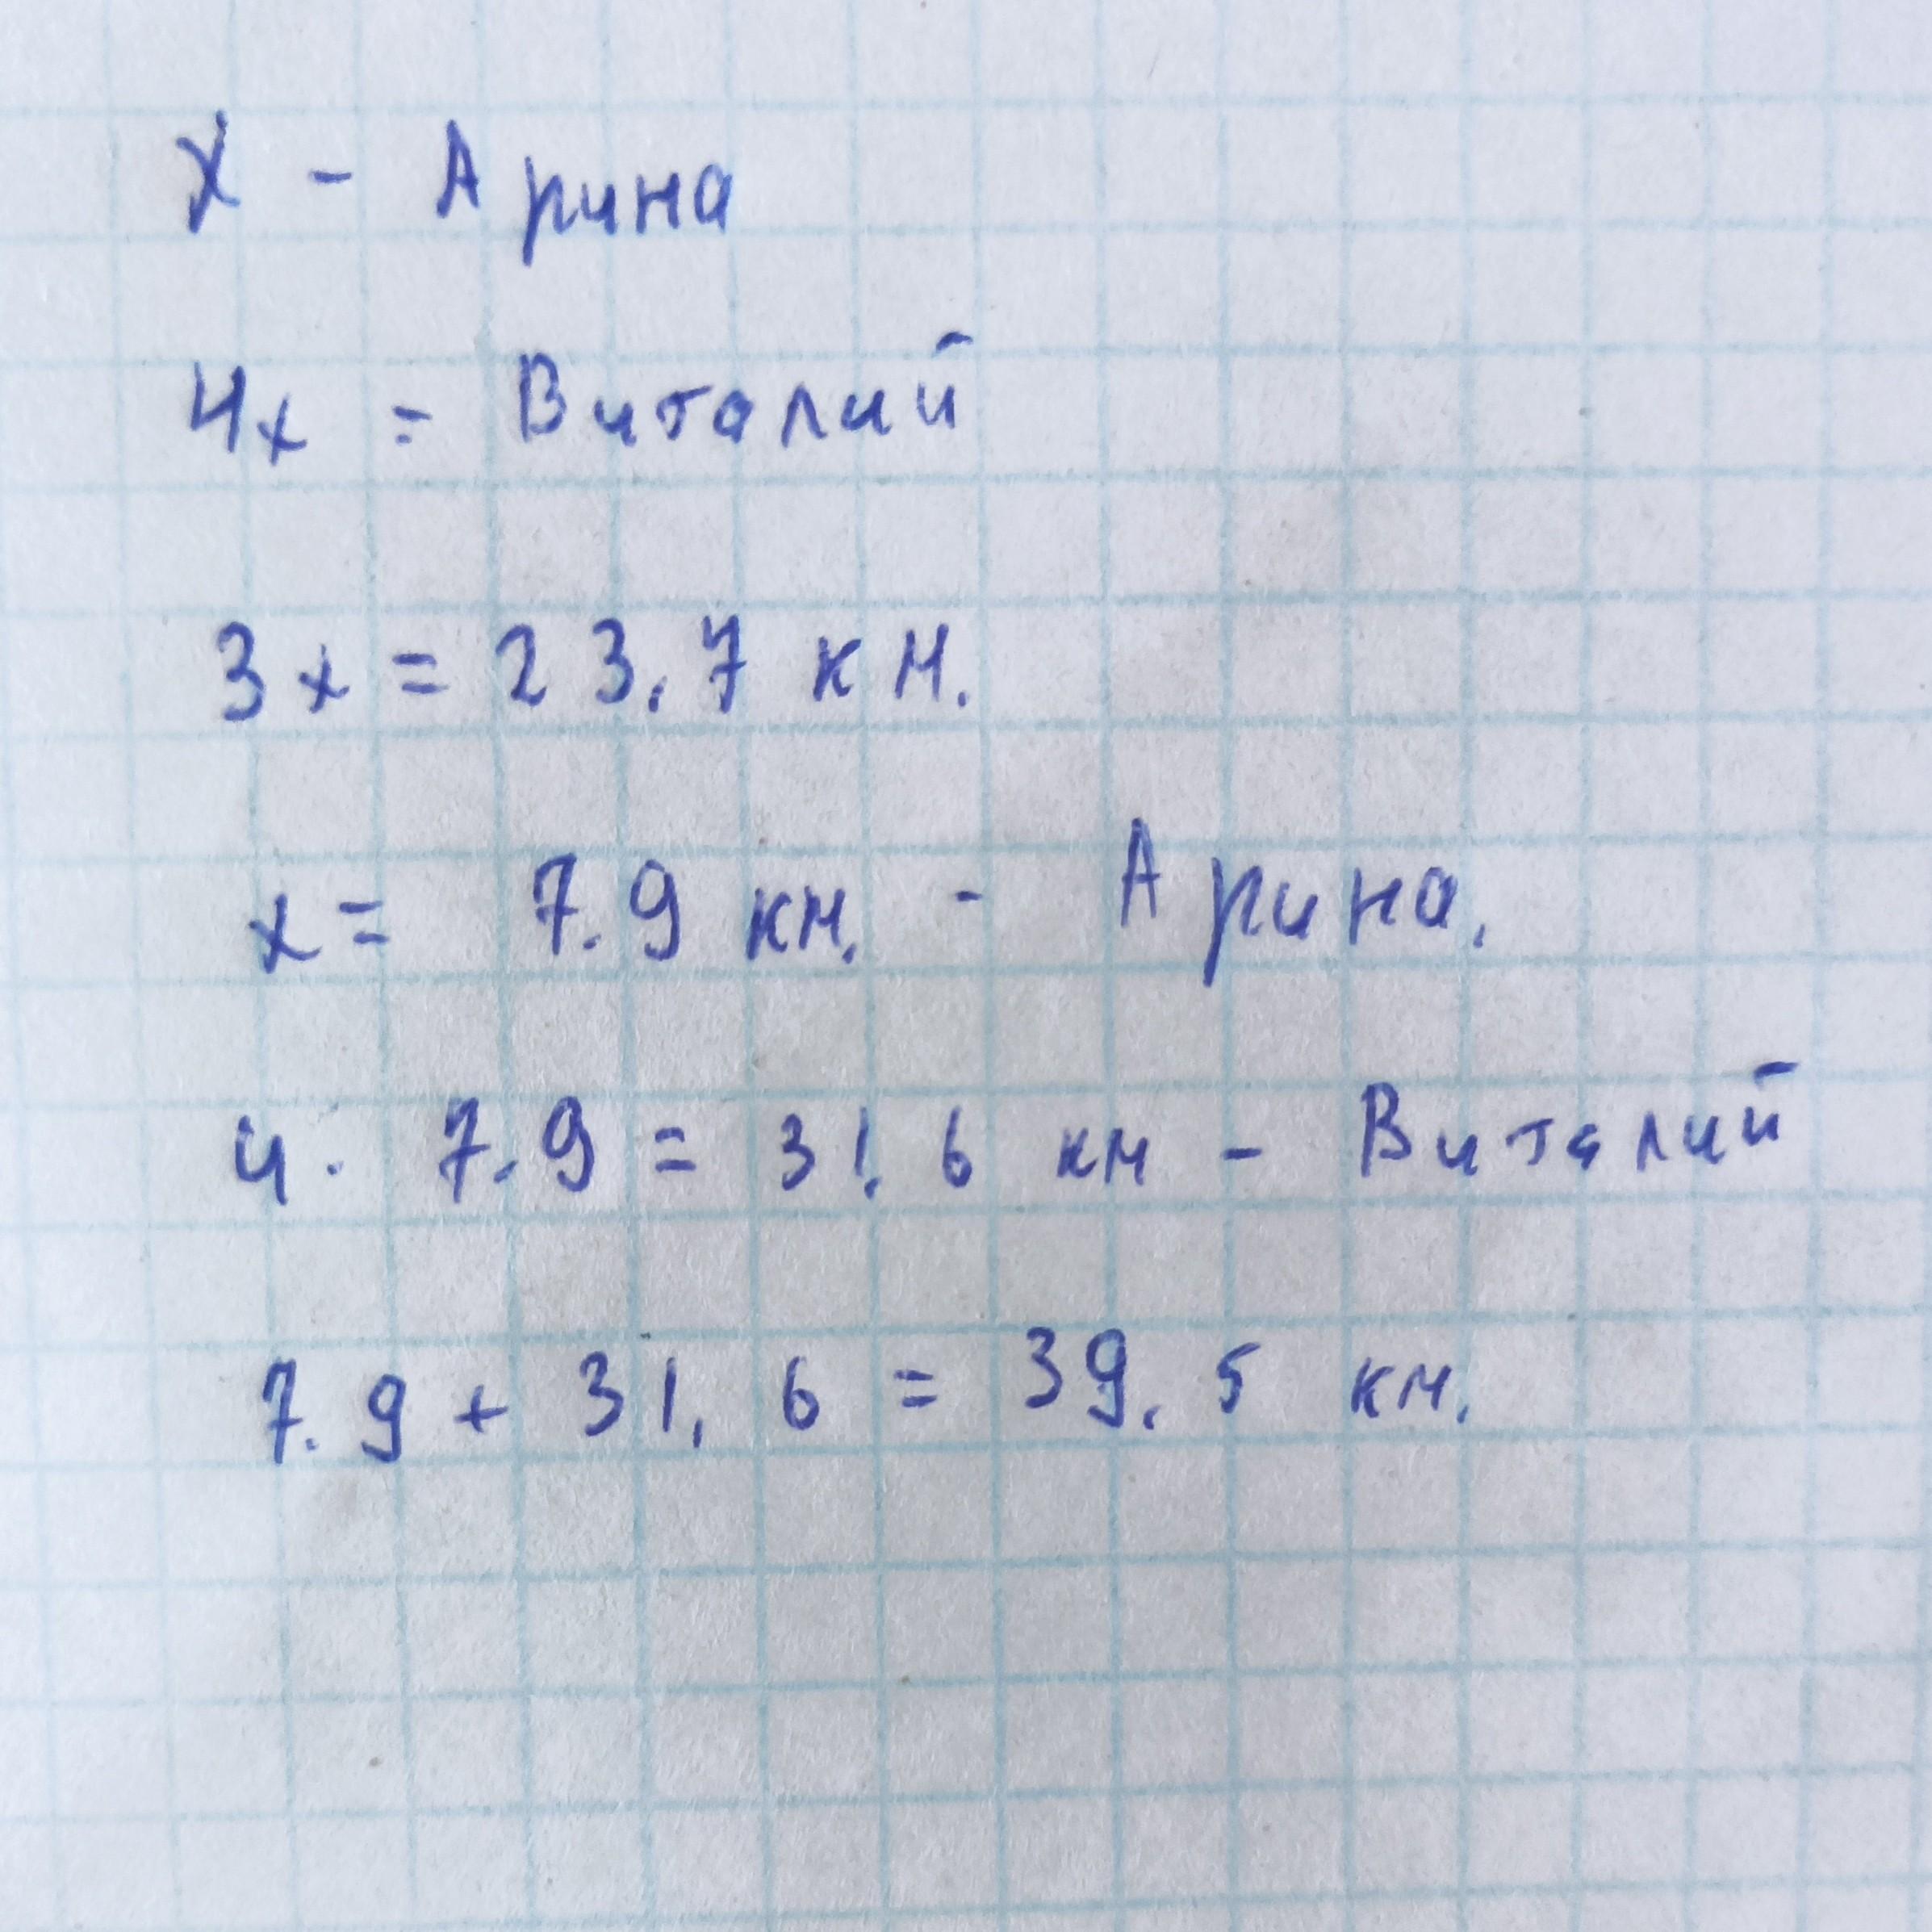 х - Арина
4х = Виталий
3х = 23.7 км.
х = 7.9 км. - Арина.
4 · 7.9 = 31.6 км - Виталий
7.9 + 31.6 = 39.5 км.